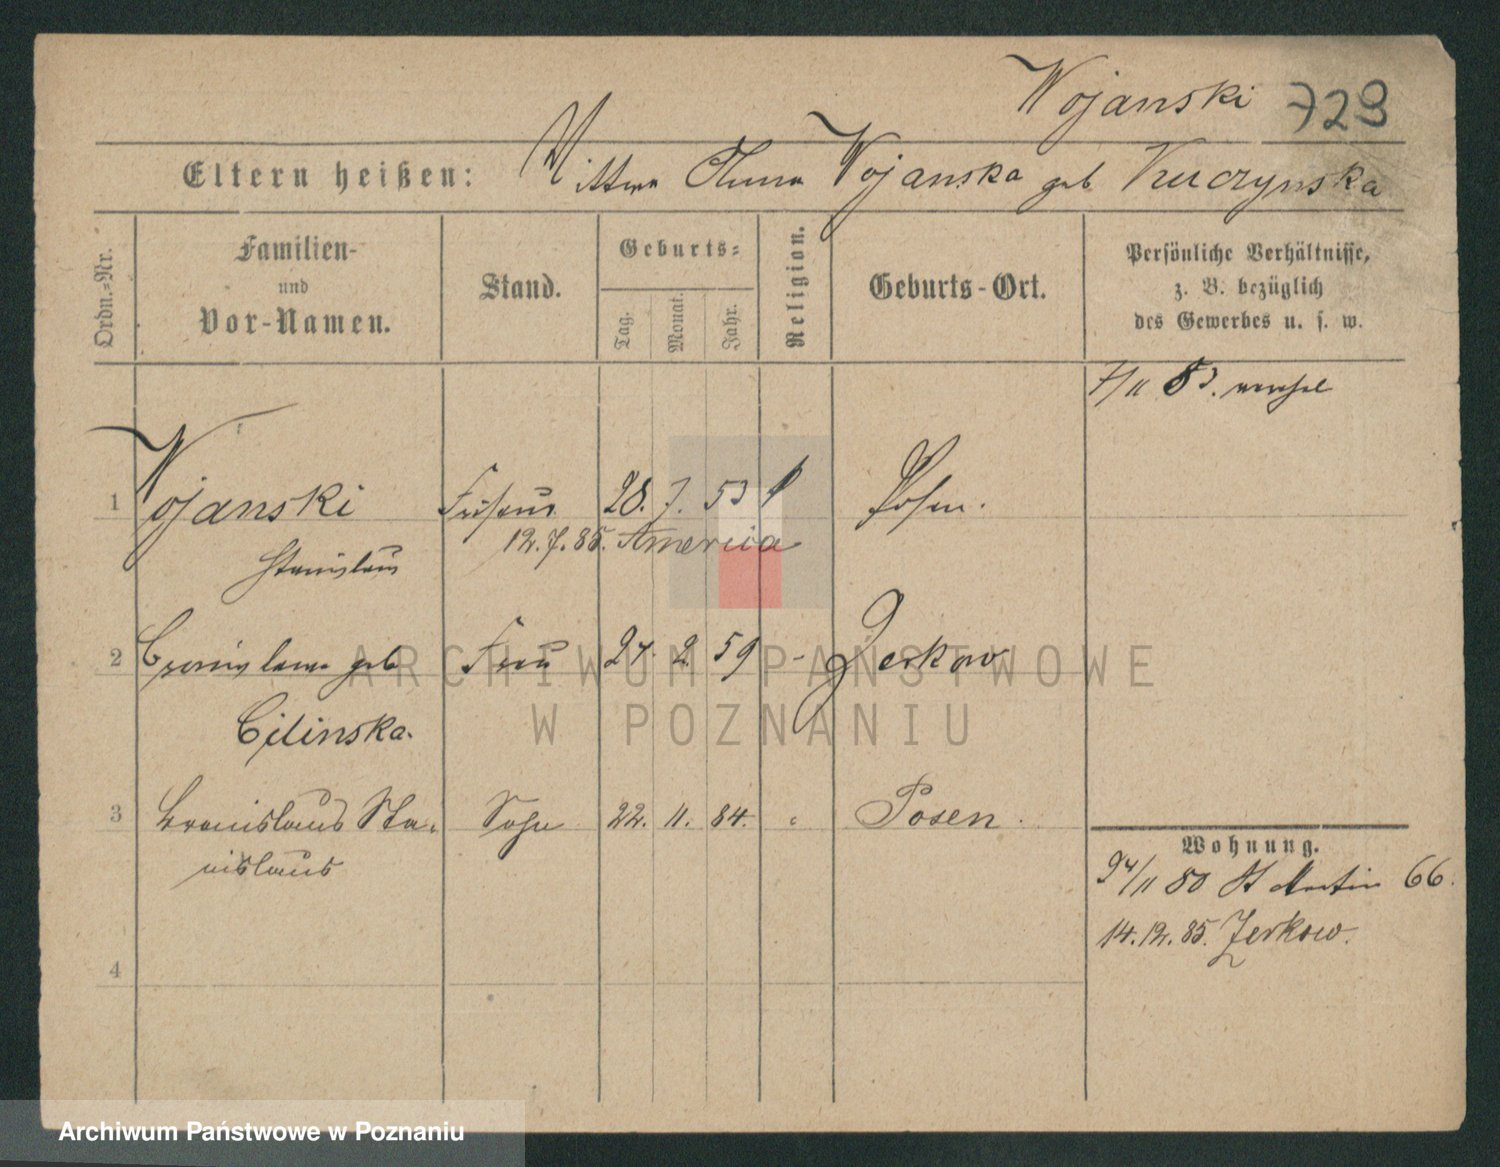 Wojanski 729
Eltern heißen: Wittwe Anna Wojanska geb Kuczynska
Ordn.-Nr.
Familien-
und
Vor-Namen.
Stand.
Geburts-
Tag.
Monat.
Jahr.
Religion.
Geburts-Ort.
Persönliche Verhältnisse,
z. B. bezüglich
des Gewerbes u. s. w.
7/11 83.
1 Wojanski Friseur 28. 7. 53 Posen.
Stanislaus 12.7.85. America
2 geb Frau 27. 2. 59 - Zerkow
Cilinska.
3 Bronislaus Sta- Sohn 22. 11. 84. Posen.
nislaus
Wohnung.
24/11 80 St Martin 66.
14.12.85. Zerkow.
4
ARCHIWUM PAŃSTWOWE
W POZNANIU
Archiwum Państwowe w Poznaniu